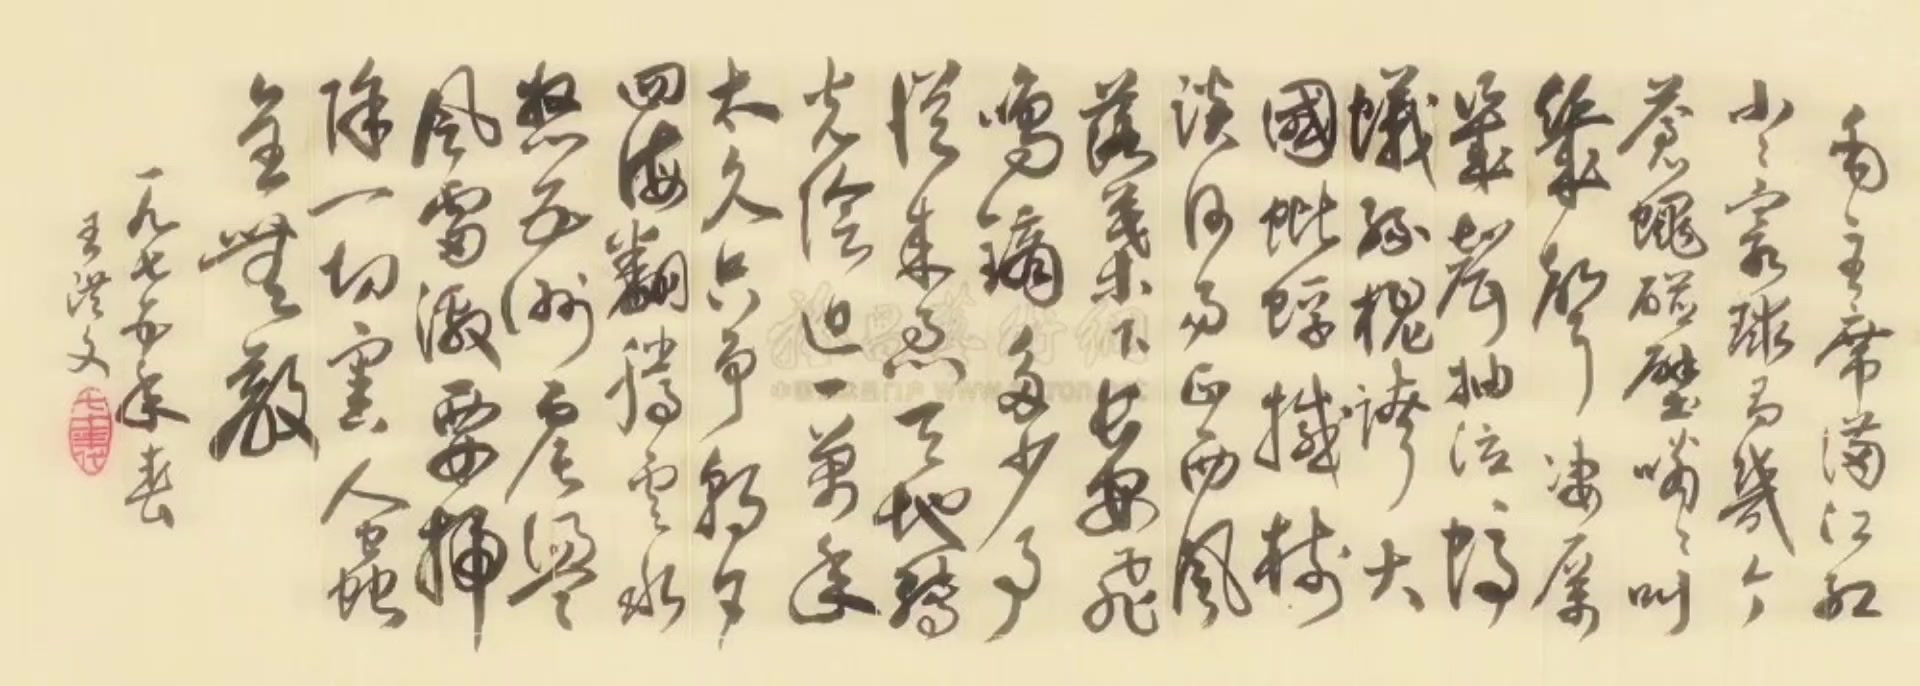 毛主席满江红
小小寰球有幾个
蒼蠅碰壁嗡嗡叫
幾聲凄厲
幾聲抽泣螞
蟻緣槐誇大
國蚍蜉撼樹
談何易正西風
落葉下長安飛
鳴鏑多少事
從來急天地轉
光陰迫一萬年
太久只爭朝夕
四海翻騰雲水
怒五洲震盪
風雷激要掃
除一切害人蟲
全無敵
一九七年春
王洪文
雅昌藝術網